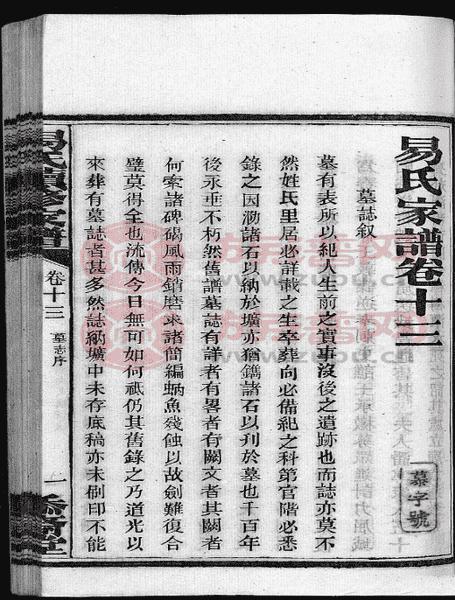 易氏家譜卷十三
墓字號
墓誌叙
墓有表所以紀人生前之實事沒後之遺跡也而誌亦莫不
然姓氏里居必詳載之生卒葬向必備紀之科第官階必悉
錄之因泐諸石以納於壙亦猶鐫諸石以刋於墓也千百年
後永垂不朽然舊譜墓誌有詳者有畧者有闕文者其闕者
何索諸碑碣風雨銷磨来諸簡編蜹魚殘蝕以故劍難復合
璧莫得全也流傳今日無可如何祇仍其舊錄之乃道光以
來葬有墓誌者甚多然誌納壙中未存底稿亦未刷印不能
易氏續修家譜
卷十三
墓志序
一
堂
游谱族网
www.zuyou.cn